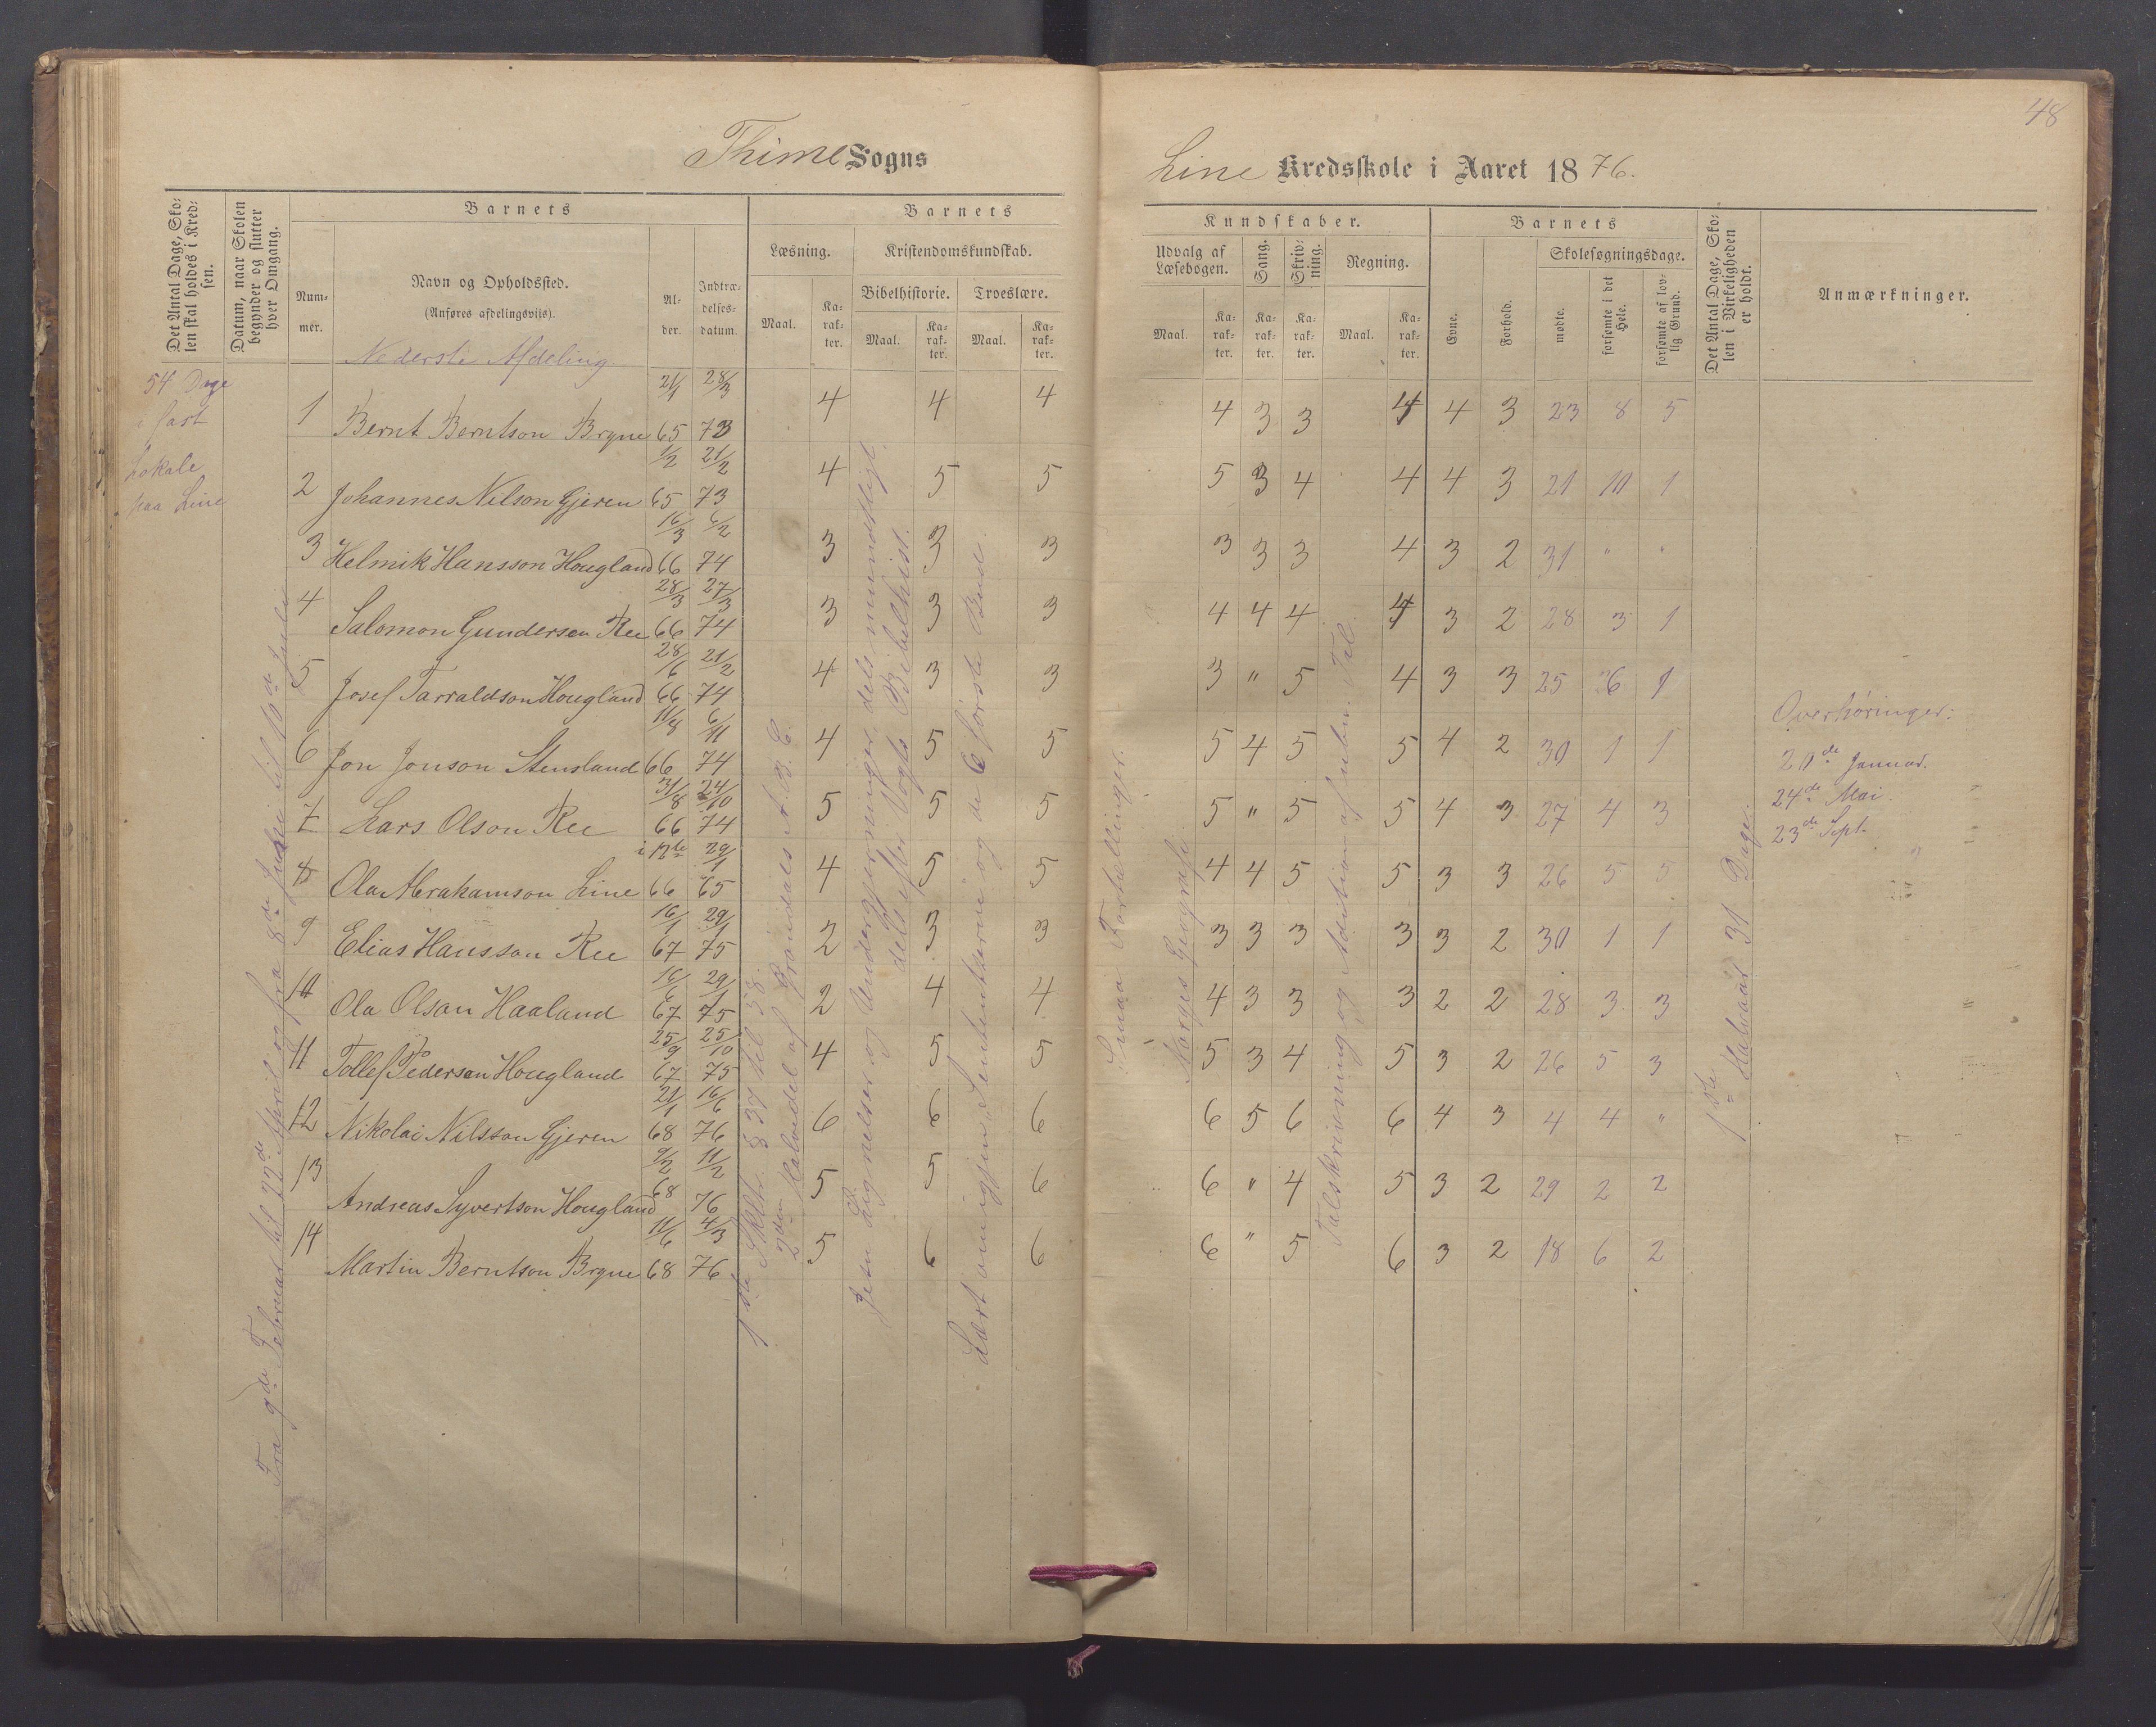 48
Thime Sogns
Line Kredsskole i Aaret 1876.
Det Antal Dage, Skolen skal holdes i Kredsen.
Datum, naar Skolen begynder og slutter hver Omgang.
Barnets
Nummer.
Navn og Opholdssted.
(Anføres afdelingsvis).
Alder.
Indtrædelsesdatum.
Barnets
Læsning.
Kristendomskundskab.
Bibelhistorie.
Troeslære.
Maal.
Karakter.
Maal.
Karakter.
Maal.
Karakter.
Kundskaber.
Udvalg af Læsebogen.
Sang.
Skrivning.
Regning.
Maal.
Karakter.
Karakter.
Karakter.
Maal.
Karakter.
Barnets
Evne.
Forhold.
Skolesøgningsdage.
mødte.
forsømte i det Hele.
forsømte af lovlig Grund.
Det Antal Dage, Skolen i Virkeligheden er holdt.
Anmærkninger.
Nederste Afdeling
54 Dage
i fast
Lokale
paa Line
1 Bernt Berntson Bryne 21/1 65 28/3 73 4 4 4 4 3 3 4 4 3 23 8 5
2 Johannes Nilson Gjeren 1/2 65 21/2 73 4 5 5 5 3 4 4 4 3 21 10 1
3 Helmik Hansson Hougland 16/3 66 6/2 74 3 3 3 3 3 3 4 3 2 31 " "
4 Salomon Gunderson Ree 28/3 66 27/3 74 3 3 3 4 4 4 4 3 2 28 3 1
5 Josef Tarraldson Hougland 28/6 66 21/2 74 4 3 3 3 " 5 4 3 3 25 6 1
6 Jon Jonson Stensland 11/8 66 6/11 74 4 5 5 5 4 5 5 4 2 30 1 1
7 Lars Olson Ree 31/8 66 24/10 74 5 5 5 5 " 5 5 4 3 27 4 3
8 Ola Abrahamson Line 66 29/1 65 4 5 5 4 4 5 5 3 3 26 5 5
9 Elias Hansson Ree 16/1 67 29/1 75 2 3 3 3 3 3 3 3 2 30 1 1
10 Ola Olson Haaland 16/6 67 29/1 75 2 4 4 4 3 3 3 2 2 28 3 3
11 Tollef Pederson Hougland 25/9 67 25/10 75 4 5 5 5 3 4 5 3 2 26 5 3
12 Nikolai Nilsson Gjeren 21/1 68 16/6 76 6 6 6 6 5 6 6 4 3 4 4 "
13 Andreas Syvertson Hougland 9/2 68 11/2 76 5 5 6 6 " 4 5 3 2 29 2 2
14 Martin Berntson Bryne 11/6 68 4/3 76 5 6 6 6 " 5 6 3 2 18 6 2
Fra 9de Februar til 22de April og fra 8de Juni til 10de Juli
1ste Sklbt. § 37 til 58.
2den Halvdel af Grøndals A. B. C.
Jesu Lignelser og Undergjerninger, dels mundtligt.
dels efter Vogts Bibelhist.
Lært omigjen Sententserne og de 6 første Bud.
Smaa Fortællinger.
Norges Geografi.
Talskrivning og Addition af uben. Tal.
1ste Halvaar 31 Dage.
Overhøringer:
20de Januar.
24de Mai.
23de Sept.